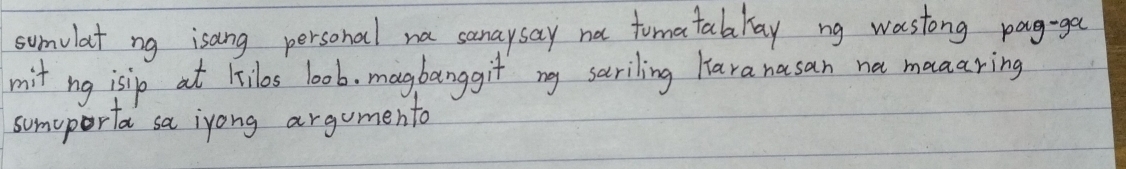 sumulat ng isang personal na sanaysay na tumatalakay ng wastong pag-ga
mit ng isip at kilos loob. magbanggit ng sariling karanasan na maaaring
sumuporta sa iyong argumento